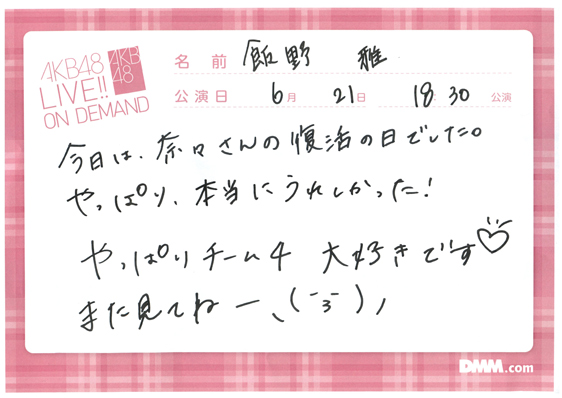 AKB48
LIVE!!
ON DEMAND
AKB
48
名前 飯野 雅
公演日 6月 21日 18:30 公演
今日は、奈々さんの復活の日でした。
やっぱり、本当にうれしかった!
やっぱりチーム4 大好きです♡
また見てねー、(¯3¯)ノ
DMM.com